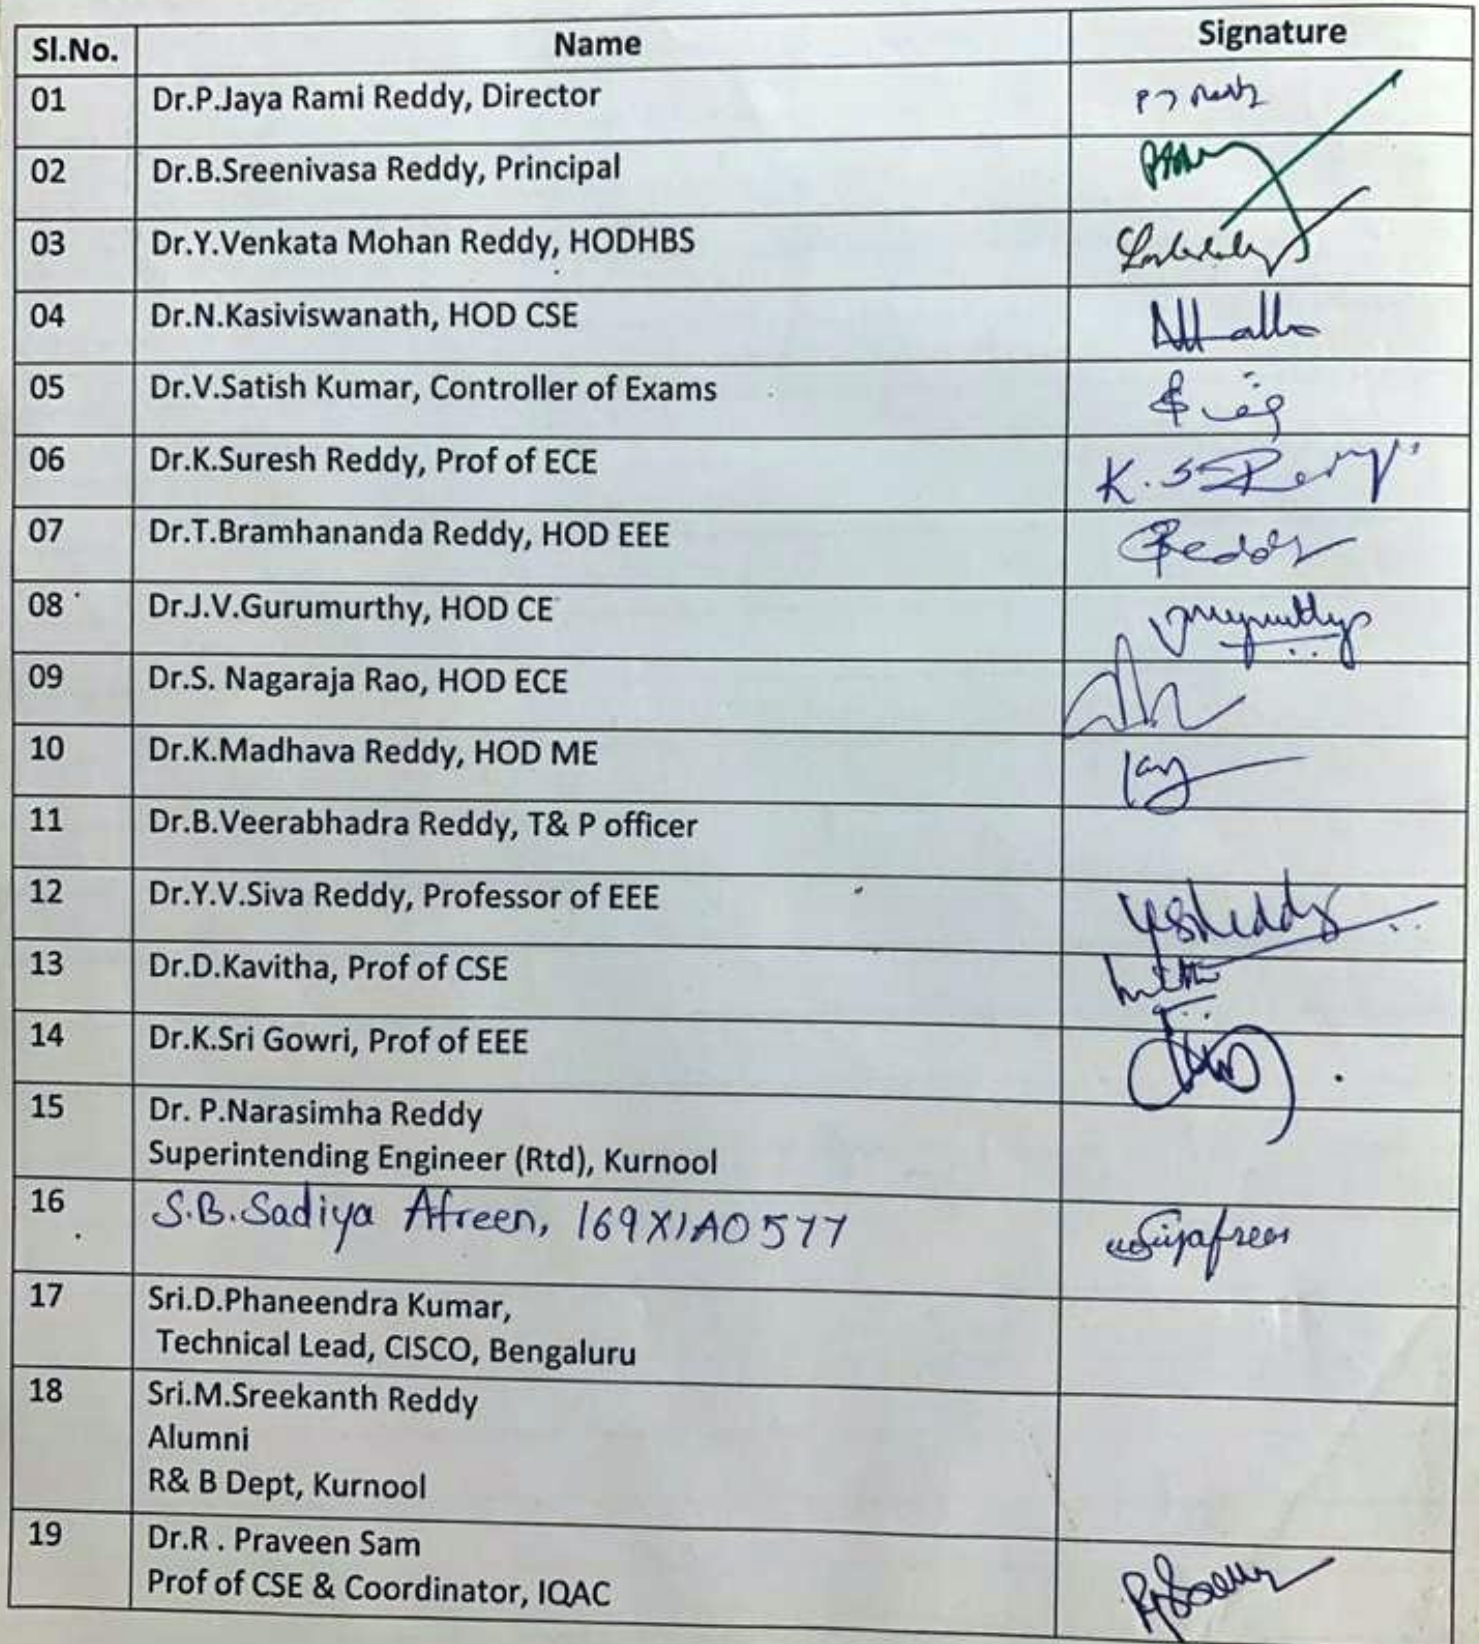 Sl.No. Name Signature
01 Dr.P.Jaya Rami Reddy, Director
02 Dr.B.Sreenivasa Reddy, Principal
03 Dr.Y.Venkata Mohan Reddy, HODHBS
04 Dr.N.Kasiviswanath, HOD CSE
05 Dr.V.Satish Kumar, Controller of Exams
06 Dr.K.Suresh Reddy, Prof of ECE
07 Dr.T.Bramhananda Reddy, HOD EEE
08 Dr.J.V.Gurumurthy, HOD CE
09 Dr.S. Nagaraja Rao, HOD ECE
10 Dr.K.Madhava Reddy, HOD ME
11 Dr.B.Veerabhadra Reddy, T& P officer
12 Dr.Y.V.Siva Reddy, Professor of EEE
13 Dr.D.Kavitha, Prof of CSE
14 Dr.K.Sri Gowri, Prof of EEE
15 Dr. P.Narasimha Reddy
Superintending Engineer (Rtd), Kurnool
16 S.B.Sadiya Afreen, 169X1A0577
17 Sri.D.Phaneendra Kumar,
Technical Lead, CISCO, Bengaluru
18 Sri.M.Sreekanth Reddy
Alumni
R& B Dept, Kurnool
19 Dr.R . Praveen Sam
Prof of CSE & Coordinator, IQAC